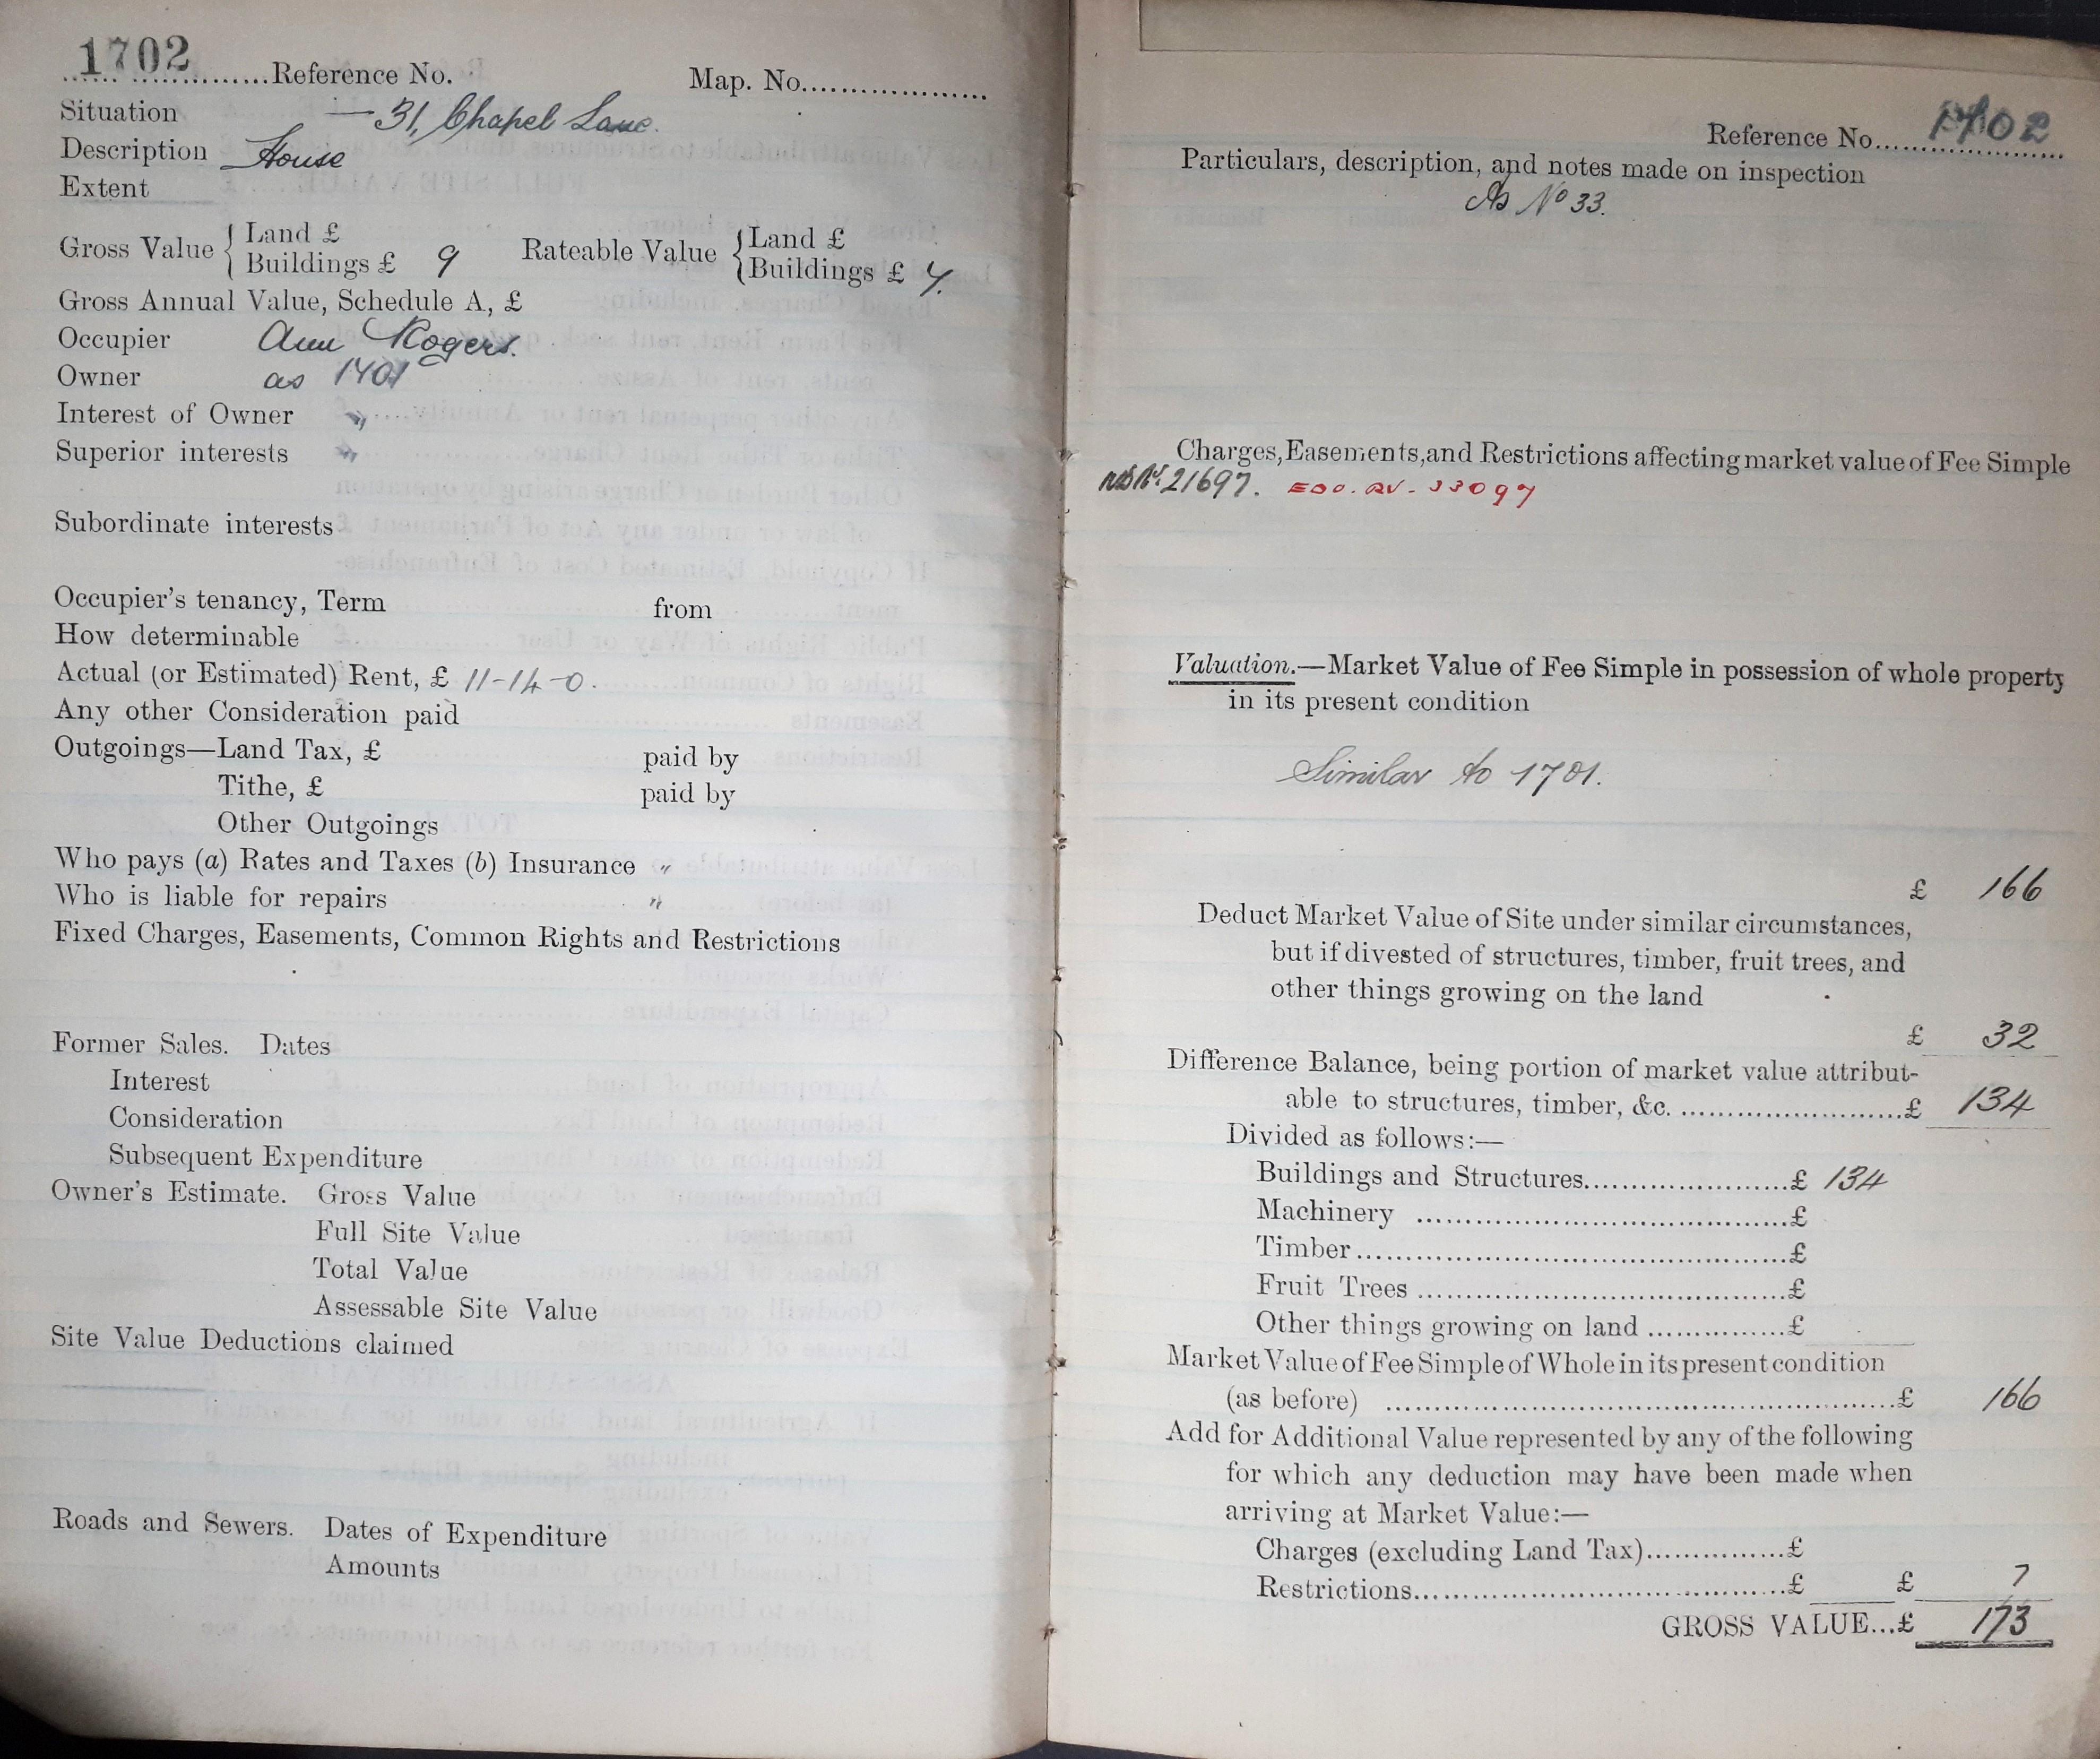 1702 Reference No. Map. No.
Situation — 31, Chapel Lane.
Description House
Extent
Gross Value { Land £
Buildings £ 9
Rateable Value { Land £
Buildings £ 7.
Gross Annual Value, Schedule A, £
Occupier Ann Rogers.
Owner as 1701
Interest of Owner "
Superior interests "
Subordinate interests
Occupier's tenancy, Term from
How determinable
Actual (or Estimated) Rent, £ 11-14-0.
Any other Consideration paid
Outgoings—Land Tax, £ paid by
Tithe, £ paid by
Other Outgoings
Who pays (a) Rates and Taxes (b) Insurance "
Who is liable for repairs "
Fixed Charges, Easements, Common Rights and Restrictions
Former Sales. Dates
Interest
Consideration
Subsequent Expenditure
Owner's Estimate. Gross Value
Full Site Value
Total Value
Assessable Site Value
Site Value Deductions claimed
Roads and Sewers. Dates of Expenditure
Amounts
Reference No. 1702
Particulars, description, and notes made on inspection
As No 33.
Charges, Easements, and Restrictions affecting market value of Fee Simple
21697. 33097
Valuation.—Market Value of Fee Simple in possession of whole property
in its present condition
Similar to 1701.
£ 166
Deduct Market Value of Site under similar circumstances,
but if divested of structures, timber, fruit trees, and
other things growing on the land
£ 32
Difference Balance, being portion of market value attribut-
able to structures, timber, &c. £ 134
Divided as follows:—
Buildings and Structures £ 134
Machinery £
Timber £
Fruit Trees £
Other things growing on land £
Market Value of Fee Simple of Whole in its present condition
(as before) £ 166
Add for Additional Value represented by any of the following
for which any deduction may have been made when
arriving at Market Value:—
Charges (excluding Land Tax) £
Restrictions £ £ 7
GROSS VALUE...£ 173